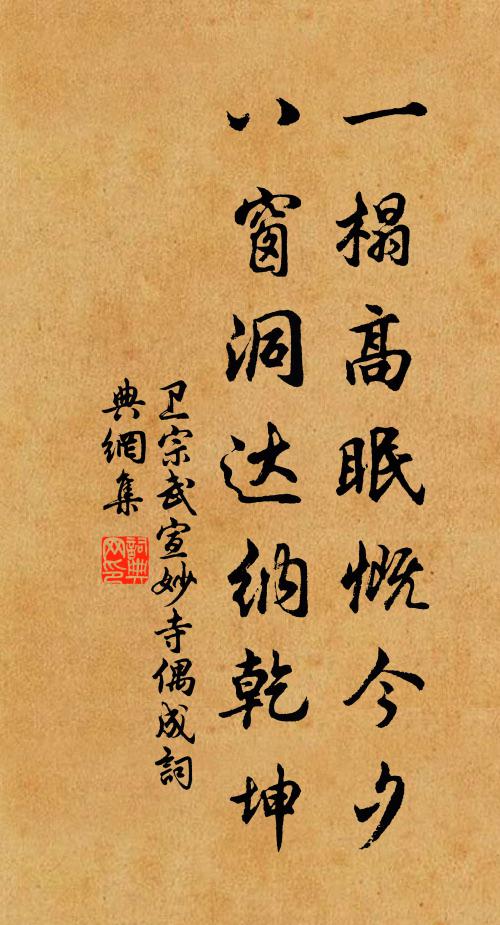 一榻高眠慨今夕
八窗洞达納乾坤
卫宗武宣妙寺偶成詞
典網集
詞典
网印